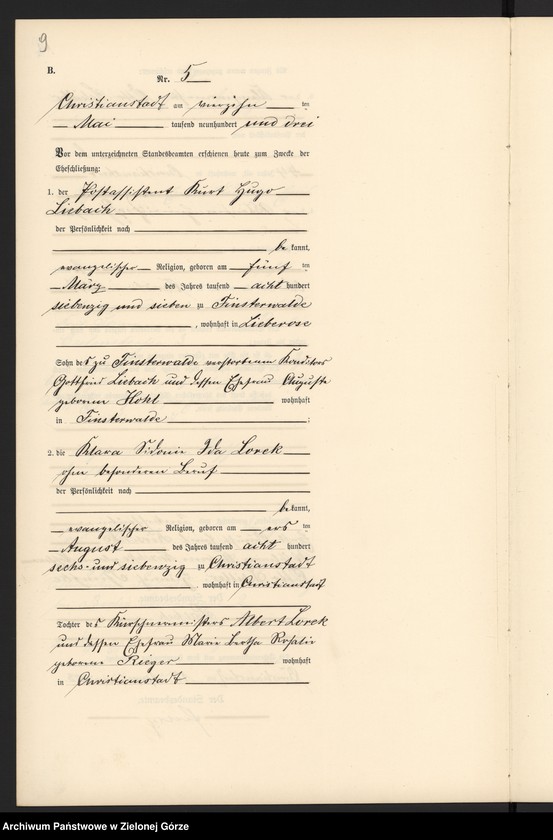 9
B.
Nr. 5
Christianstadt am vierzehn ten
Mai tausend neunhundert und drei
Vor dem unterzeichneten Standesbeamten erschienen heute zum Zwecke der
Eheschließung:
1. der Postassistent Kurt Hugo
Lisbach
der Persönlichkeit nach
be kannt,
evangelischer Religion, geboren am fünf ten
März des Jahres tausend acht hundert
siebenzig und sieben zu Finsterwalde
, wohnhaft in Lieberose
Sohn des zu Finsterwalde verstorbenen Konditors
Gottfried Lisbach und dessen Ehefrau Auguste
geborene Hohl wohnhaft
in Finsterwalde ;
2. die Klara Sidonie Ida Lorek
ohne besonderen Beruf
der Persönlichkeit nach
be kannt,
evangelischer Religion, geboren am ers ten
August des Jahres tausend acht hundert
sechs- und siebenzig zu Christianstadt
, wohnhaft in Christianstadt
Tochter des Kürschnermeisters Albert Lorek
und dessen Ehefrau Marie Bertha Rosalie
geborene Rieger wohnhaft
in Christianstadt
Archiwum Państwowe w Zielonej Górze